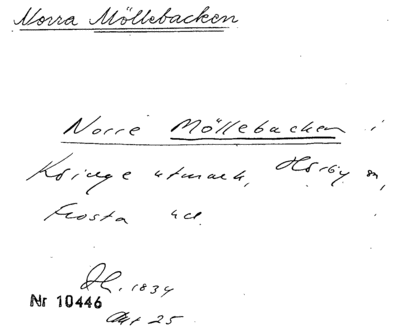 Norra Möllebacken
Norre Möllebacken i
utmark, Hörby sn,
Frosta hd.
1834
Nr 10446
Akt 25